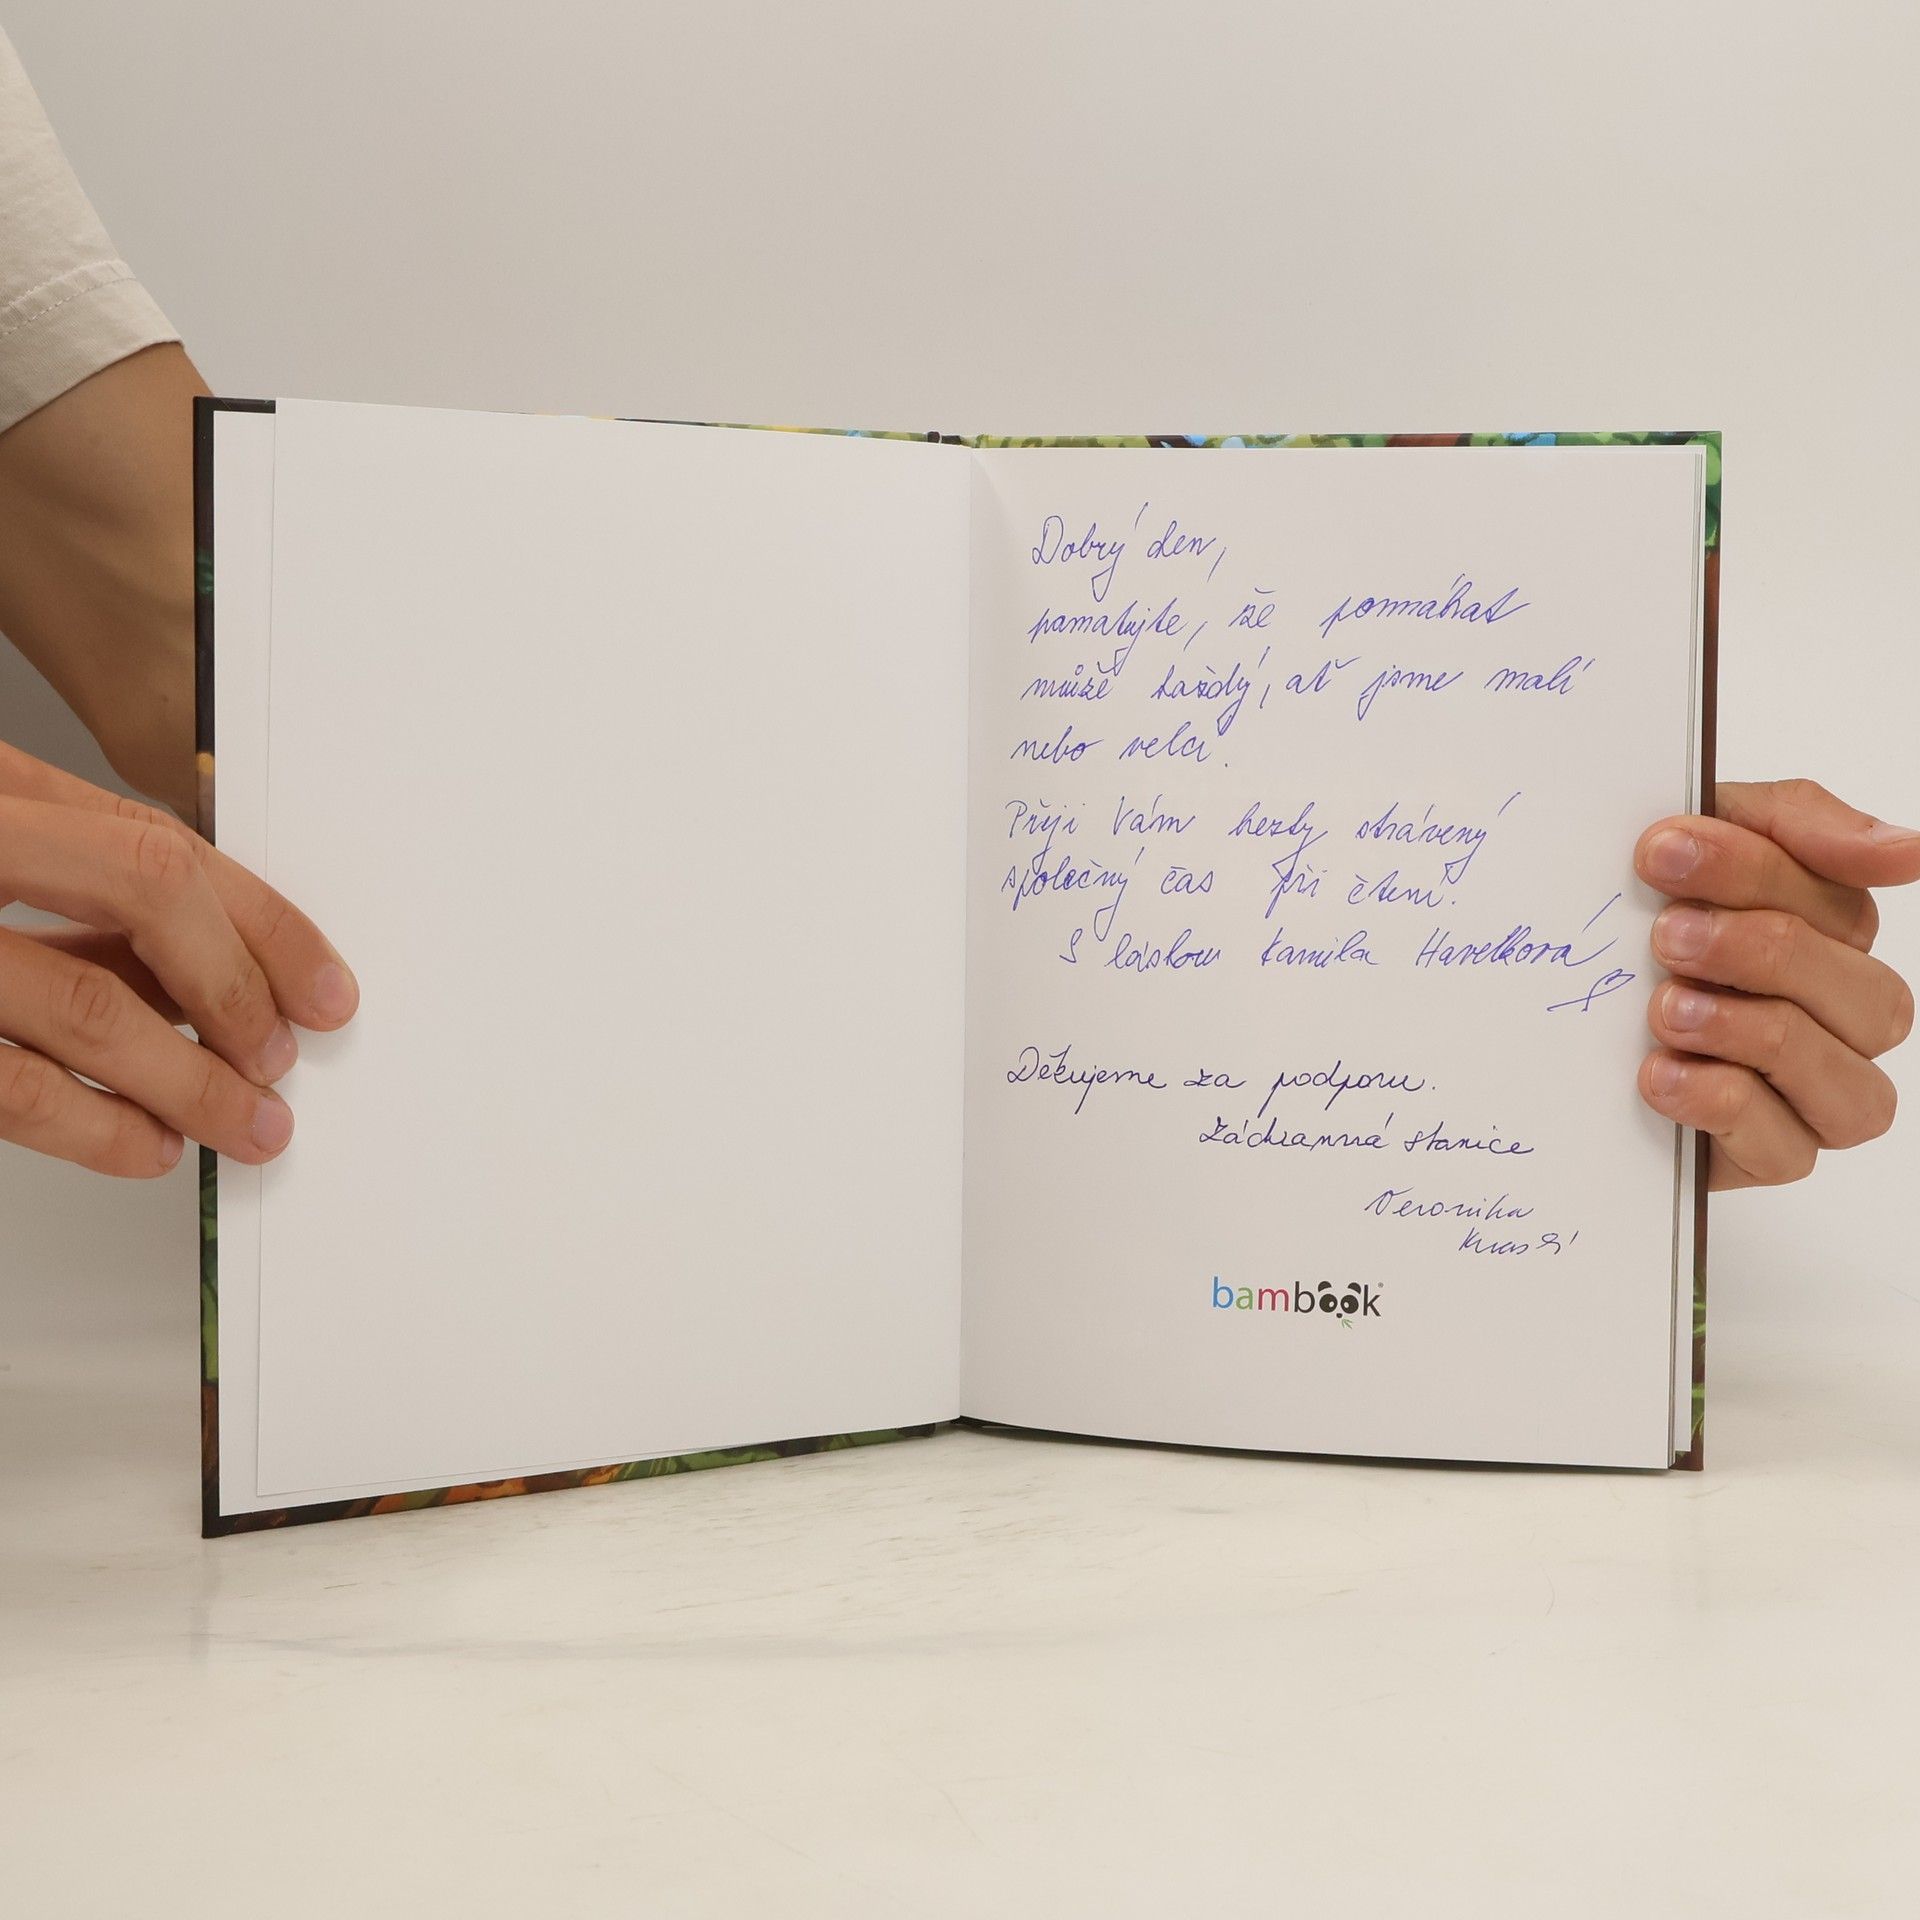 Dobrý den,
pamatujte, že pomáhat
může každý, ať jsme malí
nebo velcí.
Přeji Vám hezky strávený
společný čas při čtení.
S láskou Kamila Havelková
Děkujeme za podporu.
Záchranná stanice
Veronika
bambook®